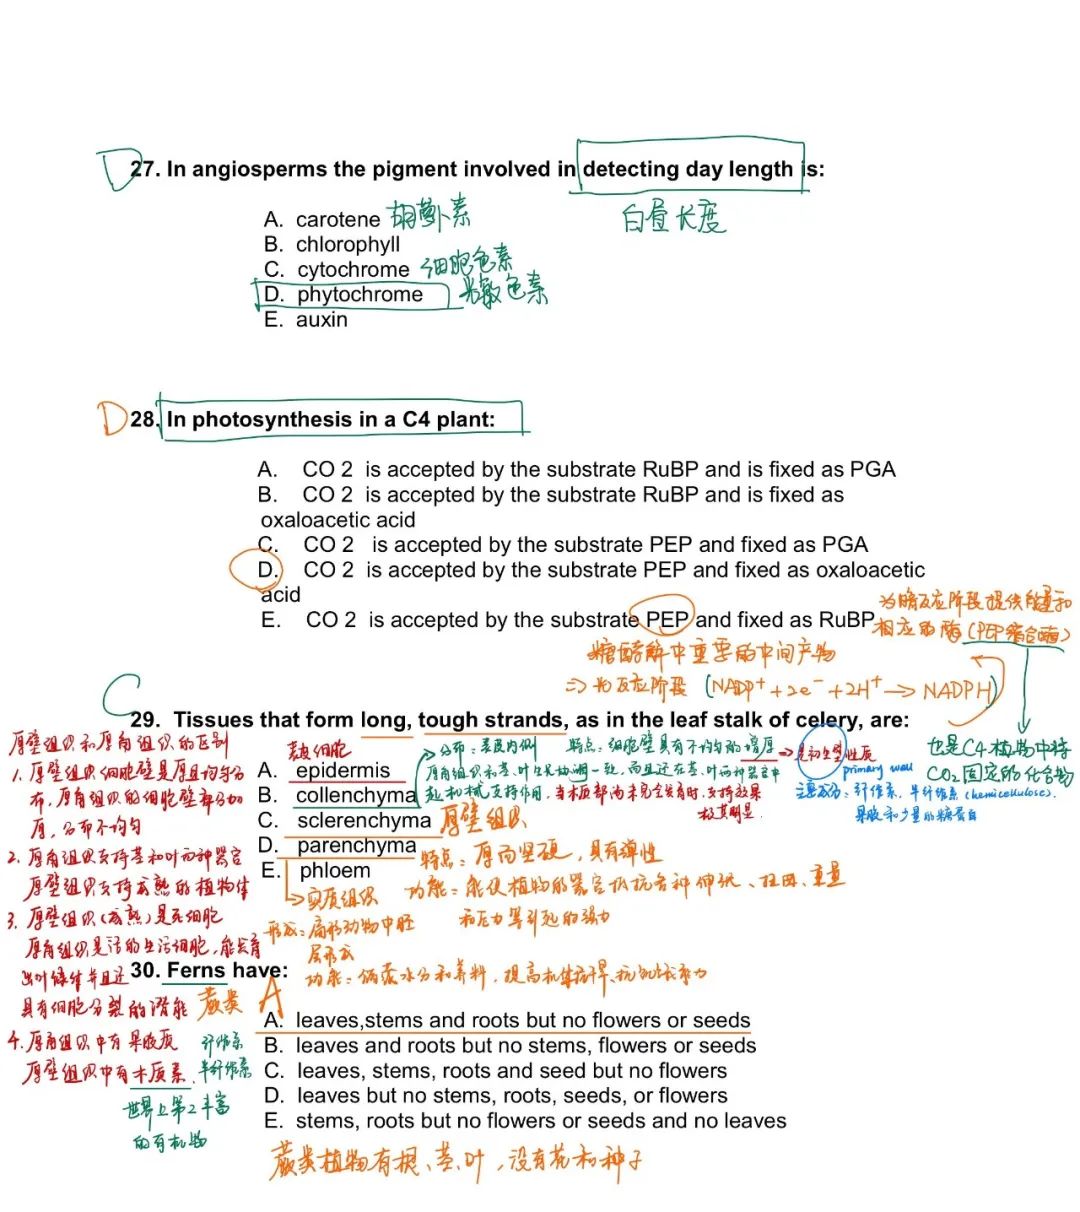 D 27. In angiosperms the pigment involved in detecting day length is:
白昼长度
A. carotene 胡萝卜素
B. chlorophyll
C. cytochrome 细胞色素
D. phytochrome 光敏色素
E. auxin
D 28. In photosynthesis in a C4 plant:
A. CO 2 is accepted by the substrate RuBP and is fixed as PGA
B. CO 2 is accepted by the substrate RuBP and is fixed as
oxaloacetic acid
C. CO 2 is accepted by the substrate PEP and fixed as PGA
D. CO 2 is accepted by the substrate PEP and fixed as oxaloacetic
acid
E. CO 2 is accepted by the substrate PEP and fixed as RuBP
为暗反应阶段提供能量和
相应的酶(PEP羧合酶)
糖酵解中重要的中间产物
⇒ 光反应阶段 (NADP⁺+2e⁻+2H⁺→NADPH)
也是C4植物中持
CO₂固定的化合物
C
29. Tissues that form long, tough strands, as in the leaf stalk of celery, are:
A. epidermis 表皮细胞
B. collenchyma
→分布:表皮内侧 特点:细胞壁具有不均匀的增厚→是初生壁性质
primary wall
厚角组织和茎、叶生长协调一致,而且还在茎、叶等器官中
起机械支持作用,当木质部尚未完全发育时,支持效果
极其明显.
主要成分:纤维素、半纤维素(hemicellulose)、
果胶和少量的糖蛋白
C. sclerenchyma 厚壁组织
特点:厚而坚硬,具有弹性
功能:能使植物的器官抵抗各种伸张、扭曲、重量
和压力等引起的张力
D. parenchyma
→实质组织
形成:扁形动物中胚
层形成
功能:储藏水分和养料,提高机体抗旱、抗饥饿能力
E. phloem
厚壁组织和厚角组织的区别
1. 厚壁组织细胞壁是厚且均匀分
布,厚角组织的细胞壁部分加
厚,分布不均匀
2. 厚角组织支持茎和叶等器官
厚壁组织支持成熟的植物体
3. 厚壁组织(成熟)是死细胞
厚角组织是活的生活细胞,能发育
出叶绿体并且还
具有细胞分裂的潜能
4. 厚角组织中有果胶质 纤维素
厚壁组织中有木质素、半纤维素
世界上第2丰富
的有机物
30. Ferns have:
蕨类 A
A. leaves,stems and roots but no flowers or seeds
B. leaves and roots but no stems, flowers or seeds
C. leaves, stems, roots and seed but no flowers
D. leaves but no stems, roots, seeds, or flowers
E. stems, roots but no flowers or seeds and no leaves
蕨类植物有根、茎、叶,没有花和种子